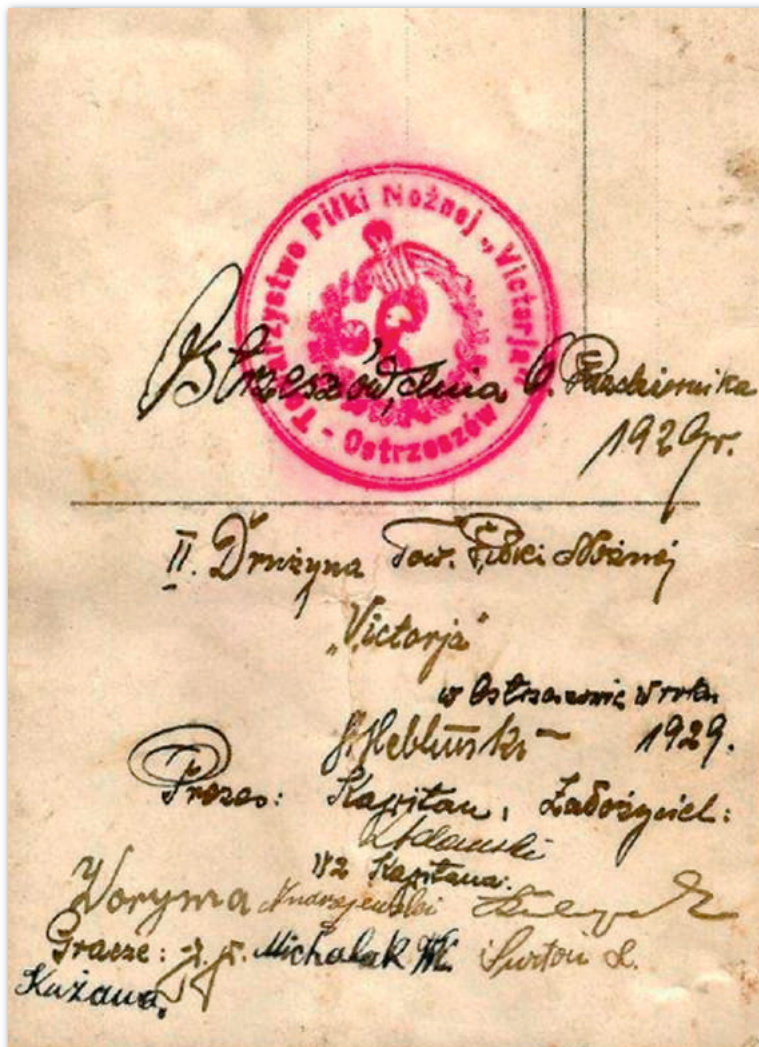 Towarzystwo Piłki Nożnej „Victorja”
- Ostrzeszów -
Ostrzeszów, dnia 6. Października
1929r.
II. Drużyna Tow. Piłki Nożnej
„Victorja”
w Ostrzeszowie w roku
1929.
Prezes: Kapitan, Założyciel:
Wz Kapitana:
Woryma Andrzejewski
Gracze: Michalak W. i
Kużawa,